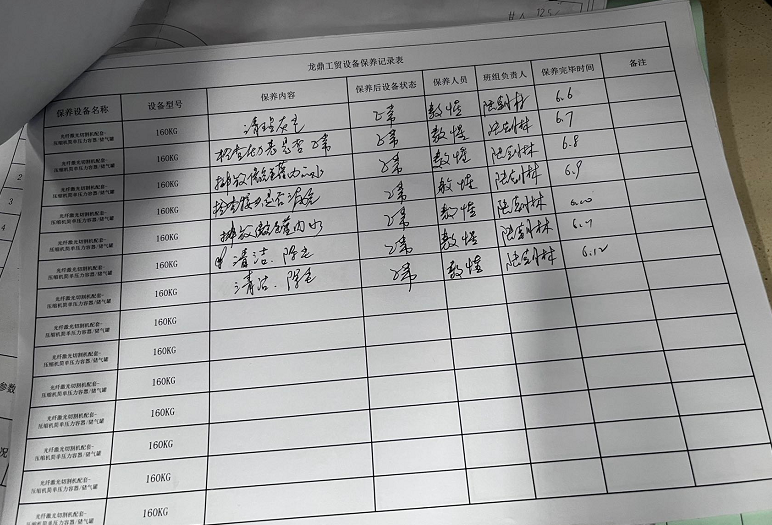 龙鼎工贸设备保养记录表
保养设备名称 设备型号 保养内容 保养后设备状态 保养人员 班组负责人 保养完毕时间 备注
光纤激光切割机配套-
压缩机简单压力容器/储气罐 160KG 清理灰尘 正常 6.6
光纤激光切割机配套-
压缩机简单压力容器/储气罐 160KG 检查压力表是否正常 正常 6.7
光纤激光切割机配套-
压缩机简单压力容器/储气罐 160KG 排放储气罐内水 正常 6.8
光纤激光切割机配套-
压缩机简单压力容器/储气罐 160KG 检查接口是否 正常 6.9
光纤激光切割机配套-
压缩机简单压力容器/储气罐 160KG 排放储气罐内水 正常 6.10
光纤激光切割机配套-
压缩机简单压力容器/储气罐 160KG 清洁、除尘 正常 6.11
光纤激光切割机配套-
压缩机简单压力容器/储气罐 160KG 清洁、除尘 正常 6.12
光纤激光切割机配套-
压缩机简单压力容器/储气罐 160KG
光纤激光切割机配套-
压缩机简单压力容器/储气罐 160KG
光纤激光切割机配套-
压缩机简单压力容器/储气罐 160KG
光纤激光切割机配套-
压缩机简单压力容器/储气罐 160KG
光纤激光切割机配套-
压缩机简单压力容器/储气罐 160KG
光纤激光切割机配套-
压缩机简单压力容器/储气罐 160KG
光纤激光切割机配套-
压缩机简单压力容器/储气罐 160KG
2
3
4
参数
况